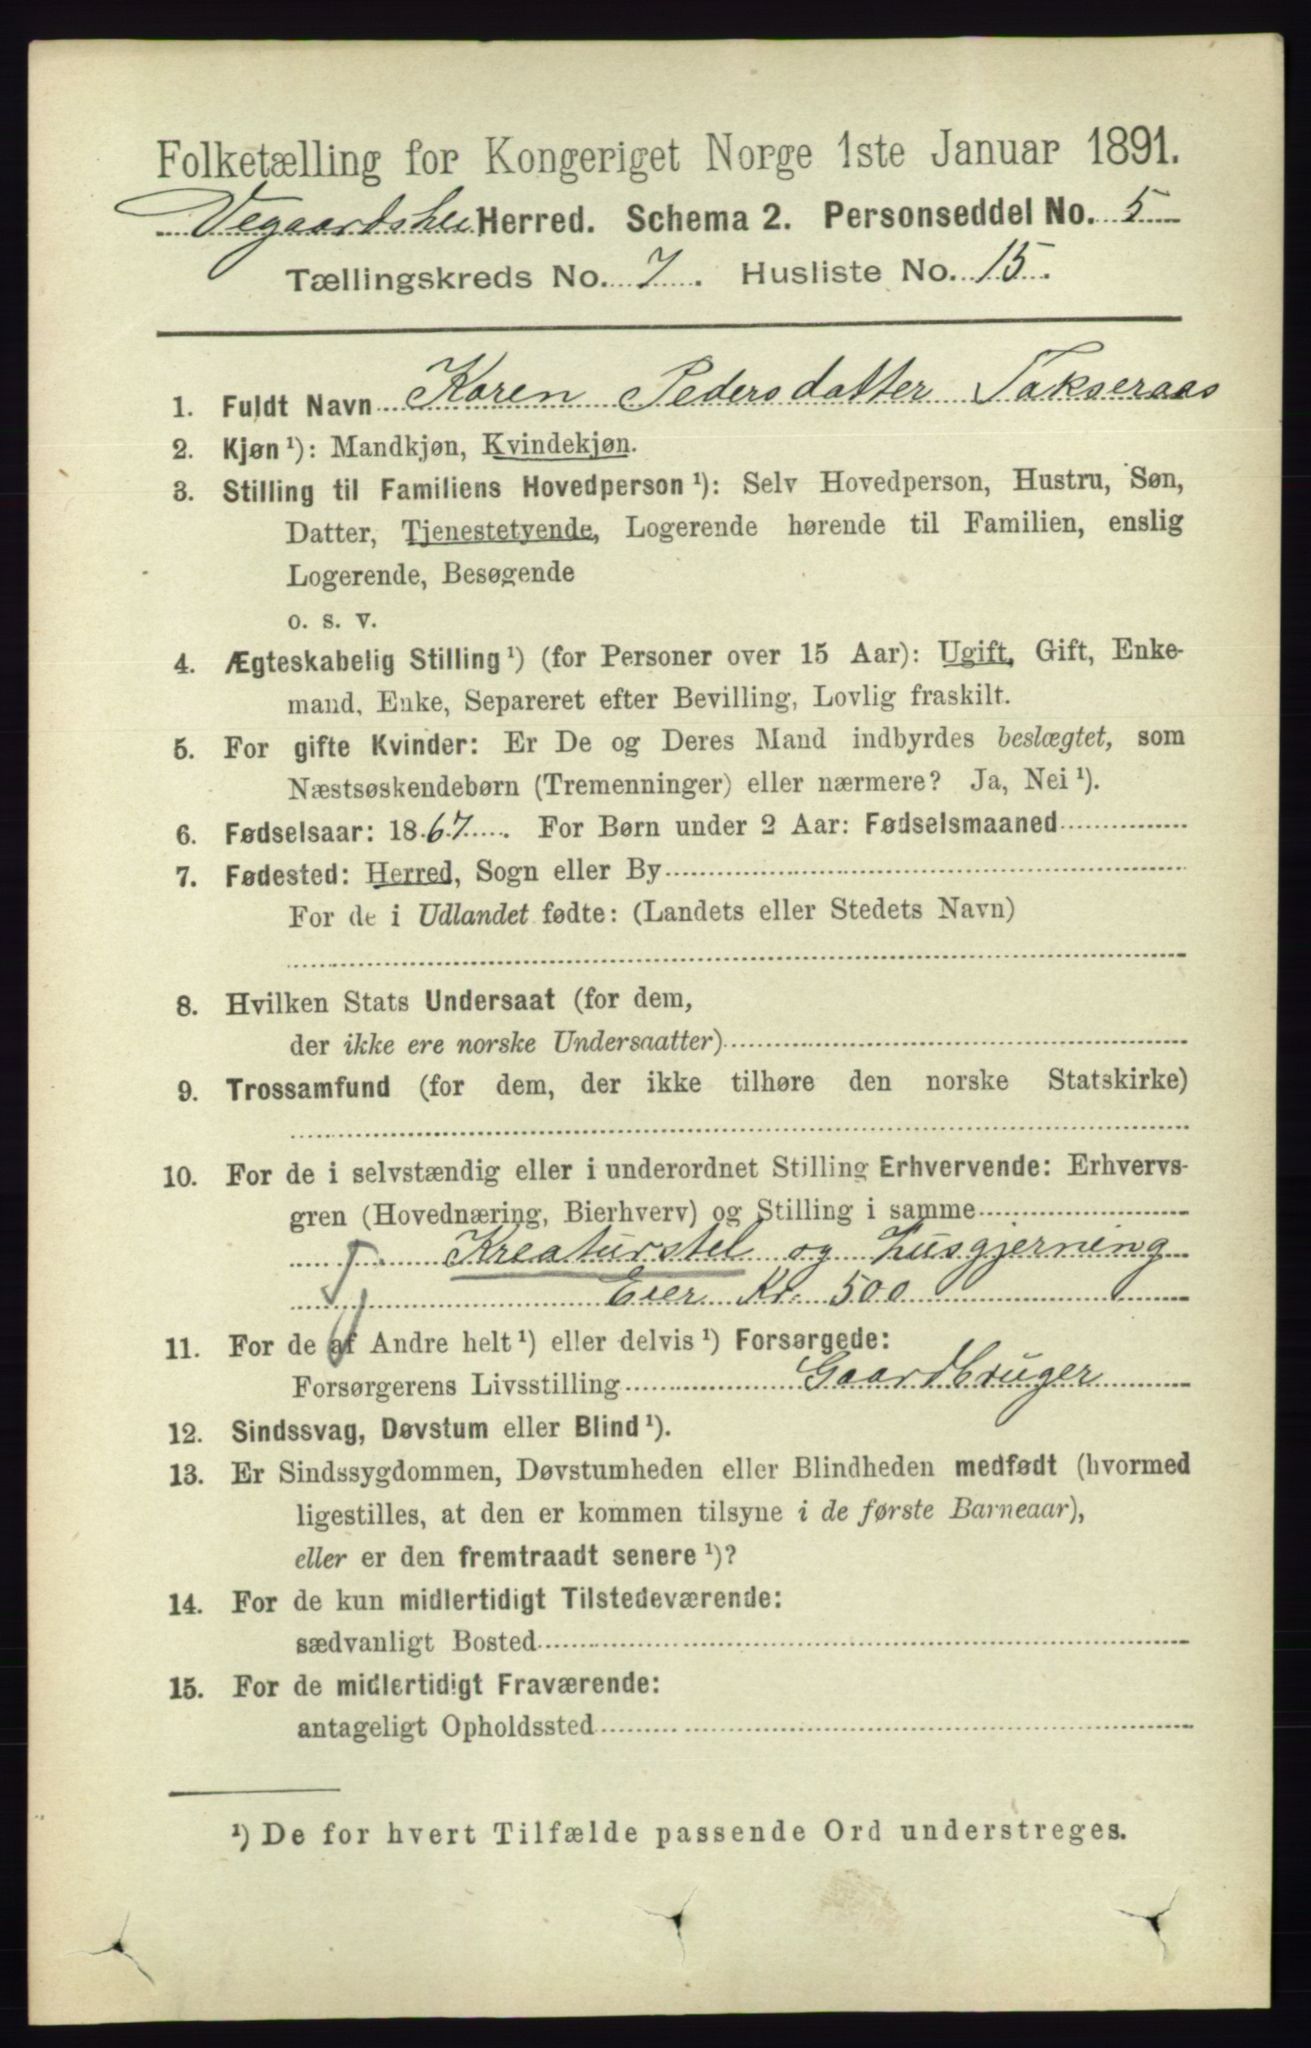 Folketælling for Kongeriget Norge 1ste Januar 1891.
Vegaardshei Herred. Schema 2. Personseddel No. 5
Tællingskreds No. 7. Husliste No. 15.
1. Fuldt Navn Karen Pedersdatter Takseraas
2. Kjøn ¹): Mandkjøn, Kvindekjøn.
3. Stilling til Familiens Hovedperson ¹): Selv Hovedperson, Hustru, Søn,
Datter, Tjenestetyende, Logerende hørende til Familien, enslig
Logerende, Besøgende
o. s. v.
4. Ægteskabelig Stilling ¹) (for Personer over 15 Aar): Ugift, Gift, Enke-
mand, Enke, Separeret efter Bevilling, Lovlig fraskilt.
5. For gifte Kvinder: Er De og Deres Mand indbyrdes beslægtet, som
Næstsøskendebørn (Tremenninger) eller nærmere? Ja, Nei ¹).
6. Fødselsaar: 1867. For Børn under 2 Aar: Fødselsmaaned
7. Fødested: Herred, Sogn eller By
For de i Udlandet fødte: (Landets eller Stedets Navn)
8. Hvilken Stats Undersaat (for dem,
der ikke ere norske Undersaatter)
9. Trossamfund (for dem, der ikke tilhøre den norske Statskirke)
10. For de i selvstændig eller i underordnet Stilling Erhvervende: Erhvervs-
gren (Hovednæring, Bierhverv) og Stilling i samme
Kreaturstel og Husgjerning
Eier Kr. 500
11. For de af Andre helt ¹) eller delvis ¹) Forsørgede:
Forsørgerens Livsstilling Gaardbruger
12. Sindssvag, Døvstum eller Blind ¹).
13. Er Sindssygdommen, Døvstumheden eller Blindheden medfødt (hvormed
ligestilles, at den er kommen tilsyne i de første Barneaar),
eller er den fremtraadt senere ¹)?
14. For de kun midlertidigt Tilstedeværende:
sædvanligt Bosted
15. For de midlertidigt Fraværende:
antageligt Opholdssted
¹) De for hvert Tilfælde passende Ord understreges.